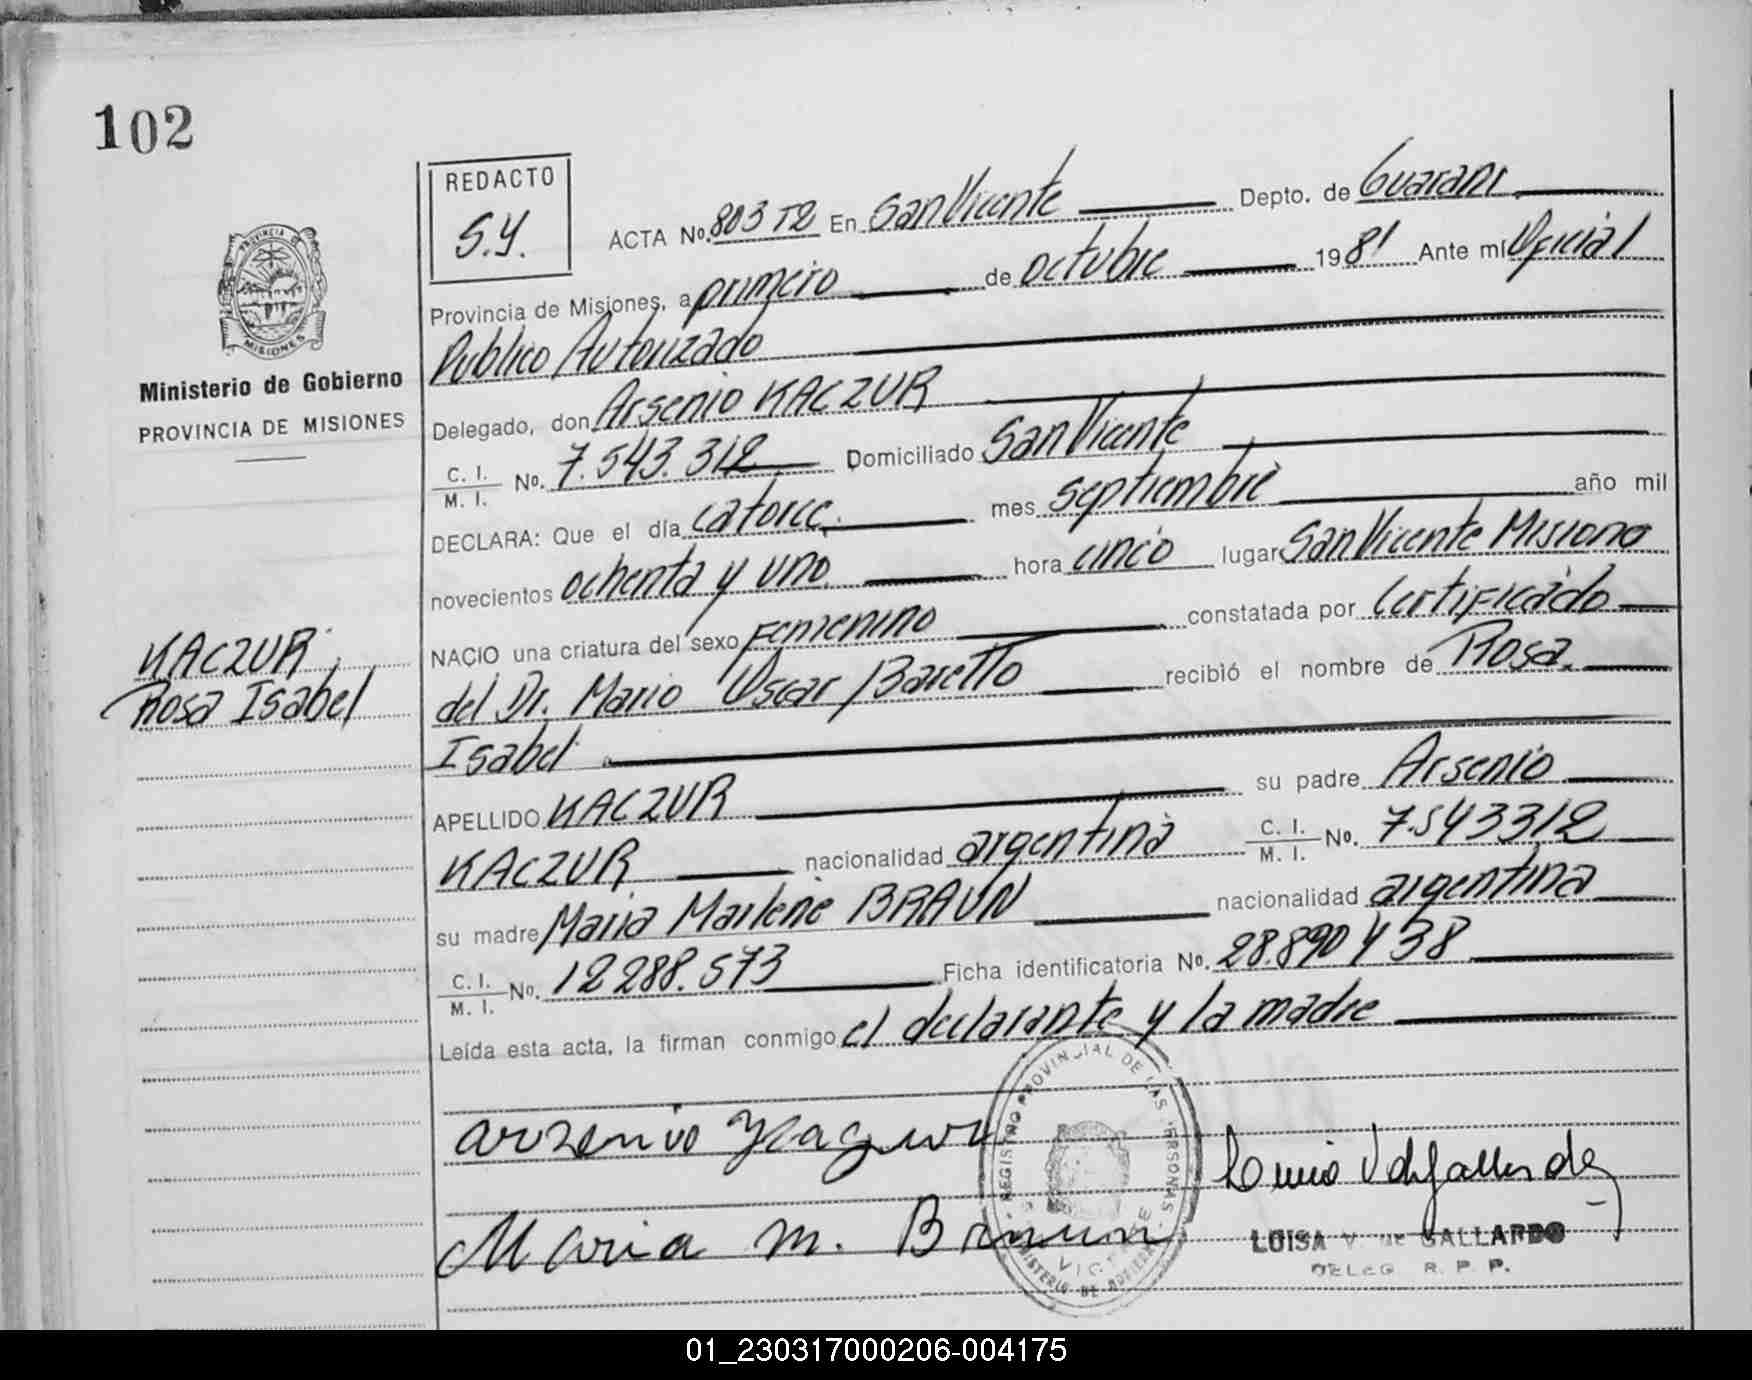 102
REDACTO
S.Y.
ACTA No. 803 T2 En San Vicente Depto. de Guarani
Provincia de Misiones, a primero de octubre 1981 Ante mí Oficial
Publico Autorizado
Delegado, don Arsenio KACZUR
C. I. / M. I. No. 7.543.312 Domiciliado San Vicente
DECLARA: Que el día catorce mes septiembre año mil
novecientos ochenta y uno hora cinco lugar San Vicente Misiones
NACIO una criatura del sexo Femenino constatada por Certificado
del Dr. Mario Oscar Baretto recibió el nombre de Rosa
Isabel
APELLIDO KACZUR su padre Arsenio
KACZUR nacionalidad argentina C. I. / M. I. No. 7.543312
su madre Maria Marlene BRAUN nacionalidad argentina
C. I. / M. I. No. 12 288.573 Ficha identificatoria No. 28.890 438
Leída esta acta, la firman conmigo el declarante y la madre
PROVINCIA
MISIONES
Ministerio de Gobierno
PROVINCIA DE MISIONES
KACZUR
Rosa Isabel
Maria M. Braun
REGISTRO PROVINCIAL DE LAS PERSONAS
LUISA V. de GALLARDO
DELEG R. P. P.
01_230317000206-004175